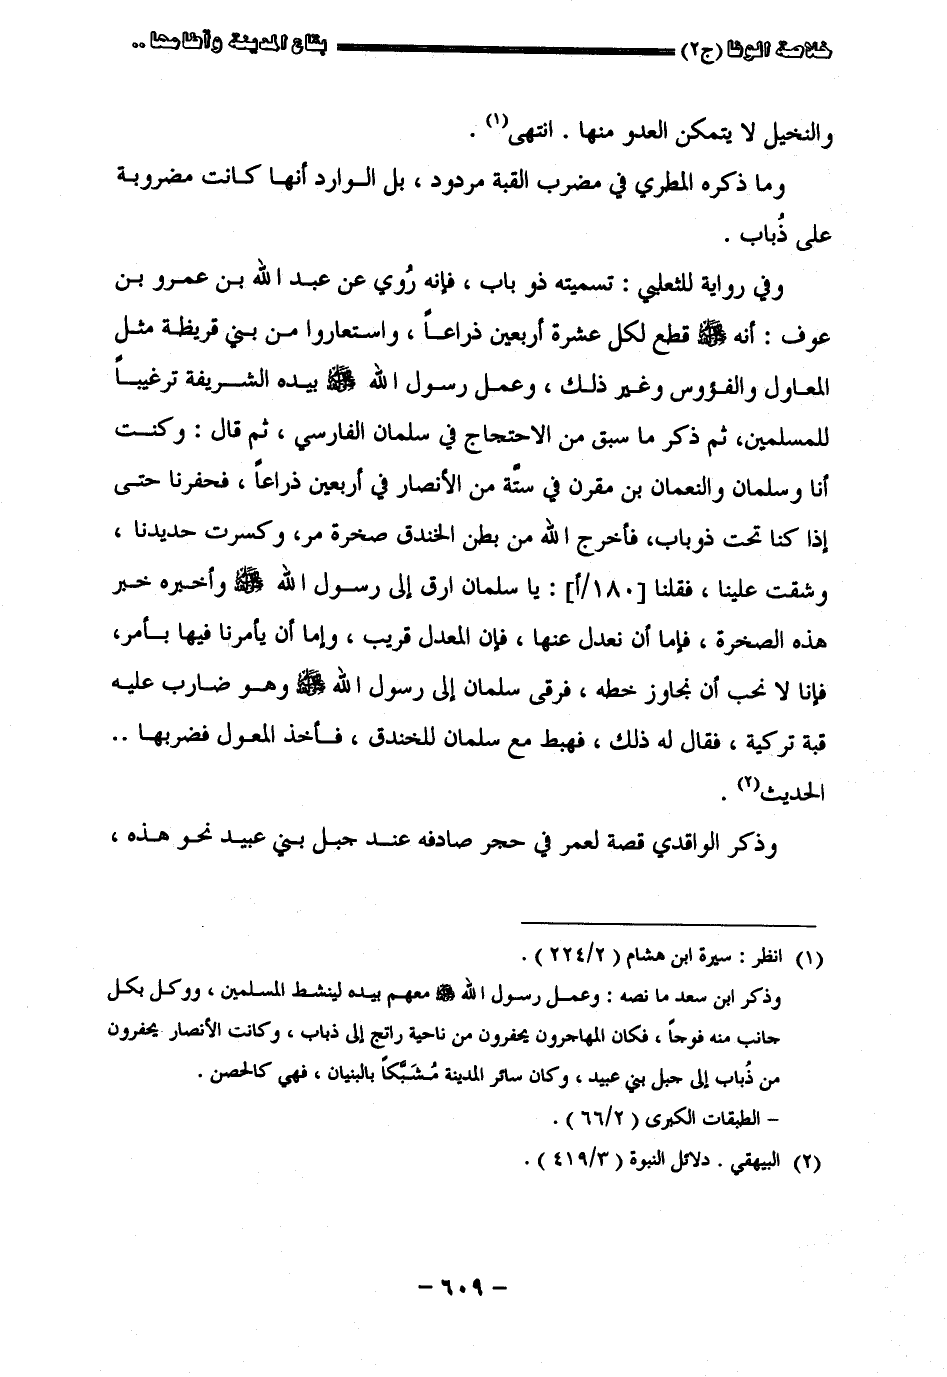 خلاصة الوفا (ج٢) بقاع المدينة وآطامها ..
والنخيل لا يتمكن العدو منها . انتهى(١) .
وما ذكره المطري في مضرب القبة مردود ، بل الوارد أنها كانت مضروبة
على ذُباب .
وفي رواية للثعلبي : تسميته ذو باب ، فإنه رُوي عن عبد الله بن عمرو بن
عوف : أنه ﷺ قطع لكل عشرة أربعين ذراعاً ، واستعاروا من بني قريظة مثل
المعاول والفؤوس وغير ذلك ، وعمل رسول الله ﷺ بيده الشريفة ترغيباً
للمسلمين، ثم ذكر ما سبق من الاحتجاج في سلمان الفارسي ، ثم قال : وكنت
أنا وسلمان والنعمان بن مقرن في ستَّة من الأنصار في أربعين ذراعاً ، فحفرنا حتى
إذا كنا تحت ذوباب، فأخرج الله من بطن الخندق صخرة مر، وكسرت حديدنا ،
وشقت علينا ، فقلنا [١٨٠/أ] : يا سلمان ارق إلى رسول الله ﷺ وأخبره خبر
هذه الصخرة ، فإما أن نعدل عنها ، فإن المعدل قريب ، وإما أن يأمرنا فيها بأمر،
فإنا لا نحب أن نجاوز خطه ، فرقى سلمان إلى رسول الله ﷺ وهو ضارب عليه
قبة تركية ، فقال له ذلك ، فهبط مع سلمان للخندق ، فأخذ المعول فضربها ..
الحديث(٢) .
وذكر الواقدي قصة لعمر في حجر صادفه عند جبل بني عبيد نحو هذه ،
(١) انظر : سيرة ابن هشام ( ٢٢٤/٢ ) .
وذكر ابن سعد ما نصه : وعمل رسول الله ﷺ معهم بيده لينشط المسلمين ، ووكل بكل
جانب منه فوجاً ، فكان المهاجرون يحفرون من ناحية راتج إلى ذباب ، وكانت الأنصار يحفرون
من ذُباب إلى جبل بني عبيد ، وكان سائر المدينة مُشَبَّكاً بالبنيان ، فهي كالحصن .
– الطبقات الكبرى ( ٦٦/٢ ) .
(٢) البيهقي . دلائل النبوة ( ٤١٩/٣ ) .
– ٦٠٩ –